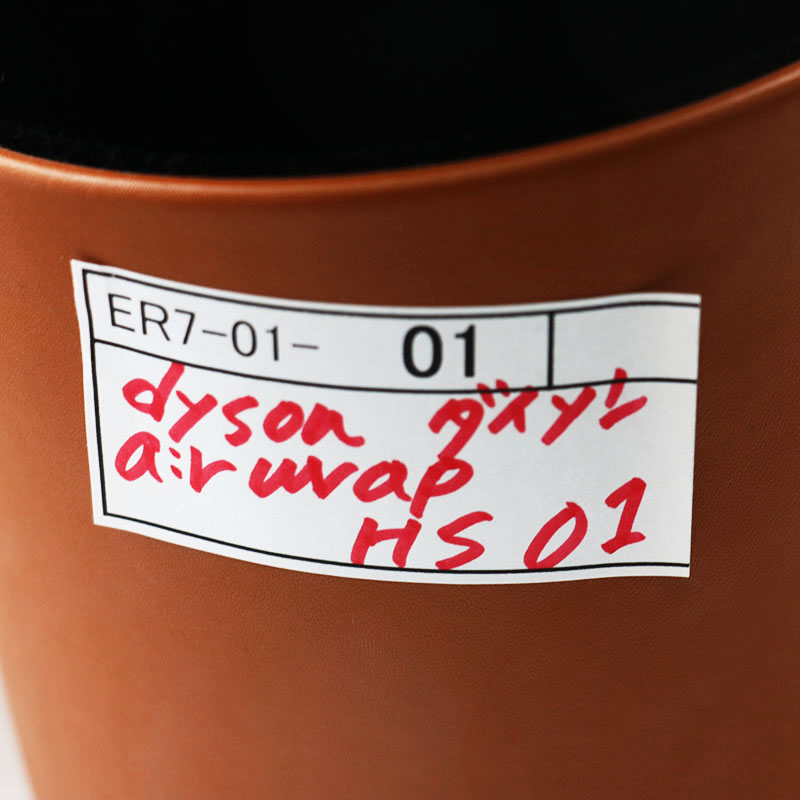 ER7-01- 01
dyson ダイソン
airwrap
HS 01